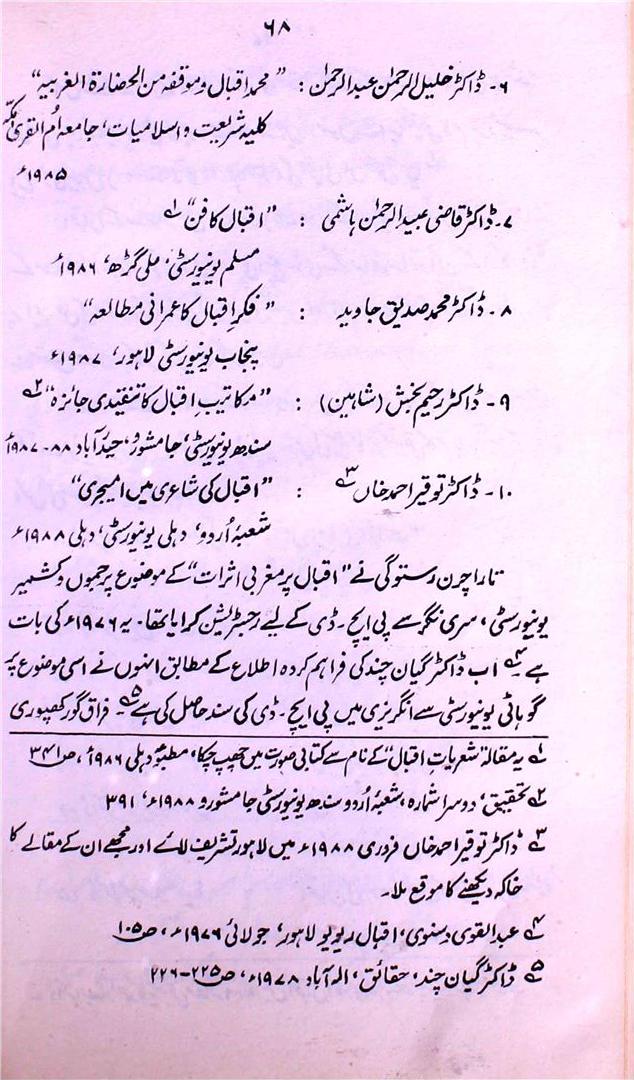 ۶۸
۶۔ ڈاکٹر خلیل الرحمٰن عبدالرحمٰن : "محمد اقبال وموقفه من الحضارة الغربیه"
کلیه شریعت و اسلامیات، جامعہ اُم القریٰ مکہ
۱۹۸۵ء
۷۔ ڈاکٹر قاضی عبید الرحمٰن ہاشمی : "اقبال کا فن" ۱؎
مسلم یونیورسٹی، علی گڑھ، ۱۹۸۶ء
۸۔ ڈاکٹر محمد صدیق جاوید : "فکرِ اقبال کا عمرانی مطالعہ"
پنجاب یونیورسٹی لاہور، ۱۹۸۷ء
۹۔ ڈاکٹر رحیم بخش (شاہین) : "مکاتیبِ اقبال کا تنقیدی جائزہ" ۲؎
سندھ یونیورسٹی، جامشورو، حیدرآباد ۸۸-۱۹۸۷ء
۱۰۔ ڈاکٹر توقیر احمد خاں ۳؎ : "اقبال کی شاعری میں امیجری"
شعبۂ اُردو، دہلی یونیورسٹی، دہلی ۱۹۸۸ء
تارا چرن رستوگی نے "اقبال پر مغربی اثرات" کے موضوع پر جموں و کشمیر
یونیورسٹی، سری نگر سے پی ایچ۔ ڈی کے لیے رجسٹریشن کرایا تھا۔ یہ ۱۹۷۶ء کی بات
ہے ۴؎۔ اب ڈاکٹر گیان چند کی فراہم کردہ اطلاع کے مطابق انہوں نے اسی موضوع پر
گوہاٹی یونیورسٹی سے انگریزی میں پی ایچ۔ ڈی کی سند حاصل کی ہے ۵؎۔ فراق گورکھپوری
۱؎ یہ مقالہ "شعریاتِ اقبال" کے نام سے کتابی صورت میں چھپ چکا، مطبوعہ دہلی ۱۹۸۶ء، ص ۳۴۱
۲؎ تحقیق، دوسرا شمارہ، شعبۂ اُردو سندھ یونیورسٹی جامشورو ۱۹۸۸ء، ۳۹۱
۳؎ ڈاکٹر توقیر احمد خاں فروری ۱۹۸۸ء میں لاہور تشریف لائے اور مجھے ان کے مقالے کا
خاکہ دیکھنے کا موقع ملا۔
۴؎ عبدالقوی دسنوی، اقبال ریویو لاہور، جولائی ۱۹۷۶ء، ص ۱۰۵
۵؎ ڈاکٹر گیان چند، حقائق، الہ آباد ۱۹۷۸ء، ص ۲۲۵-۲۲۶